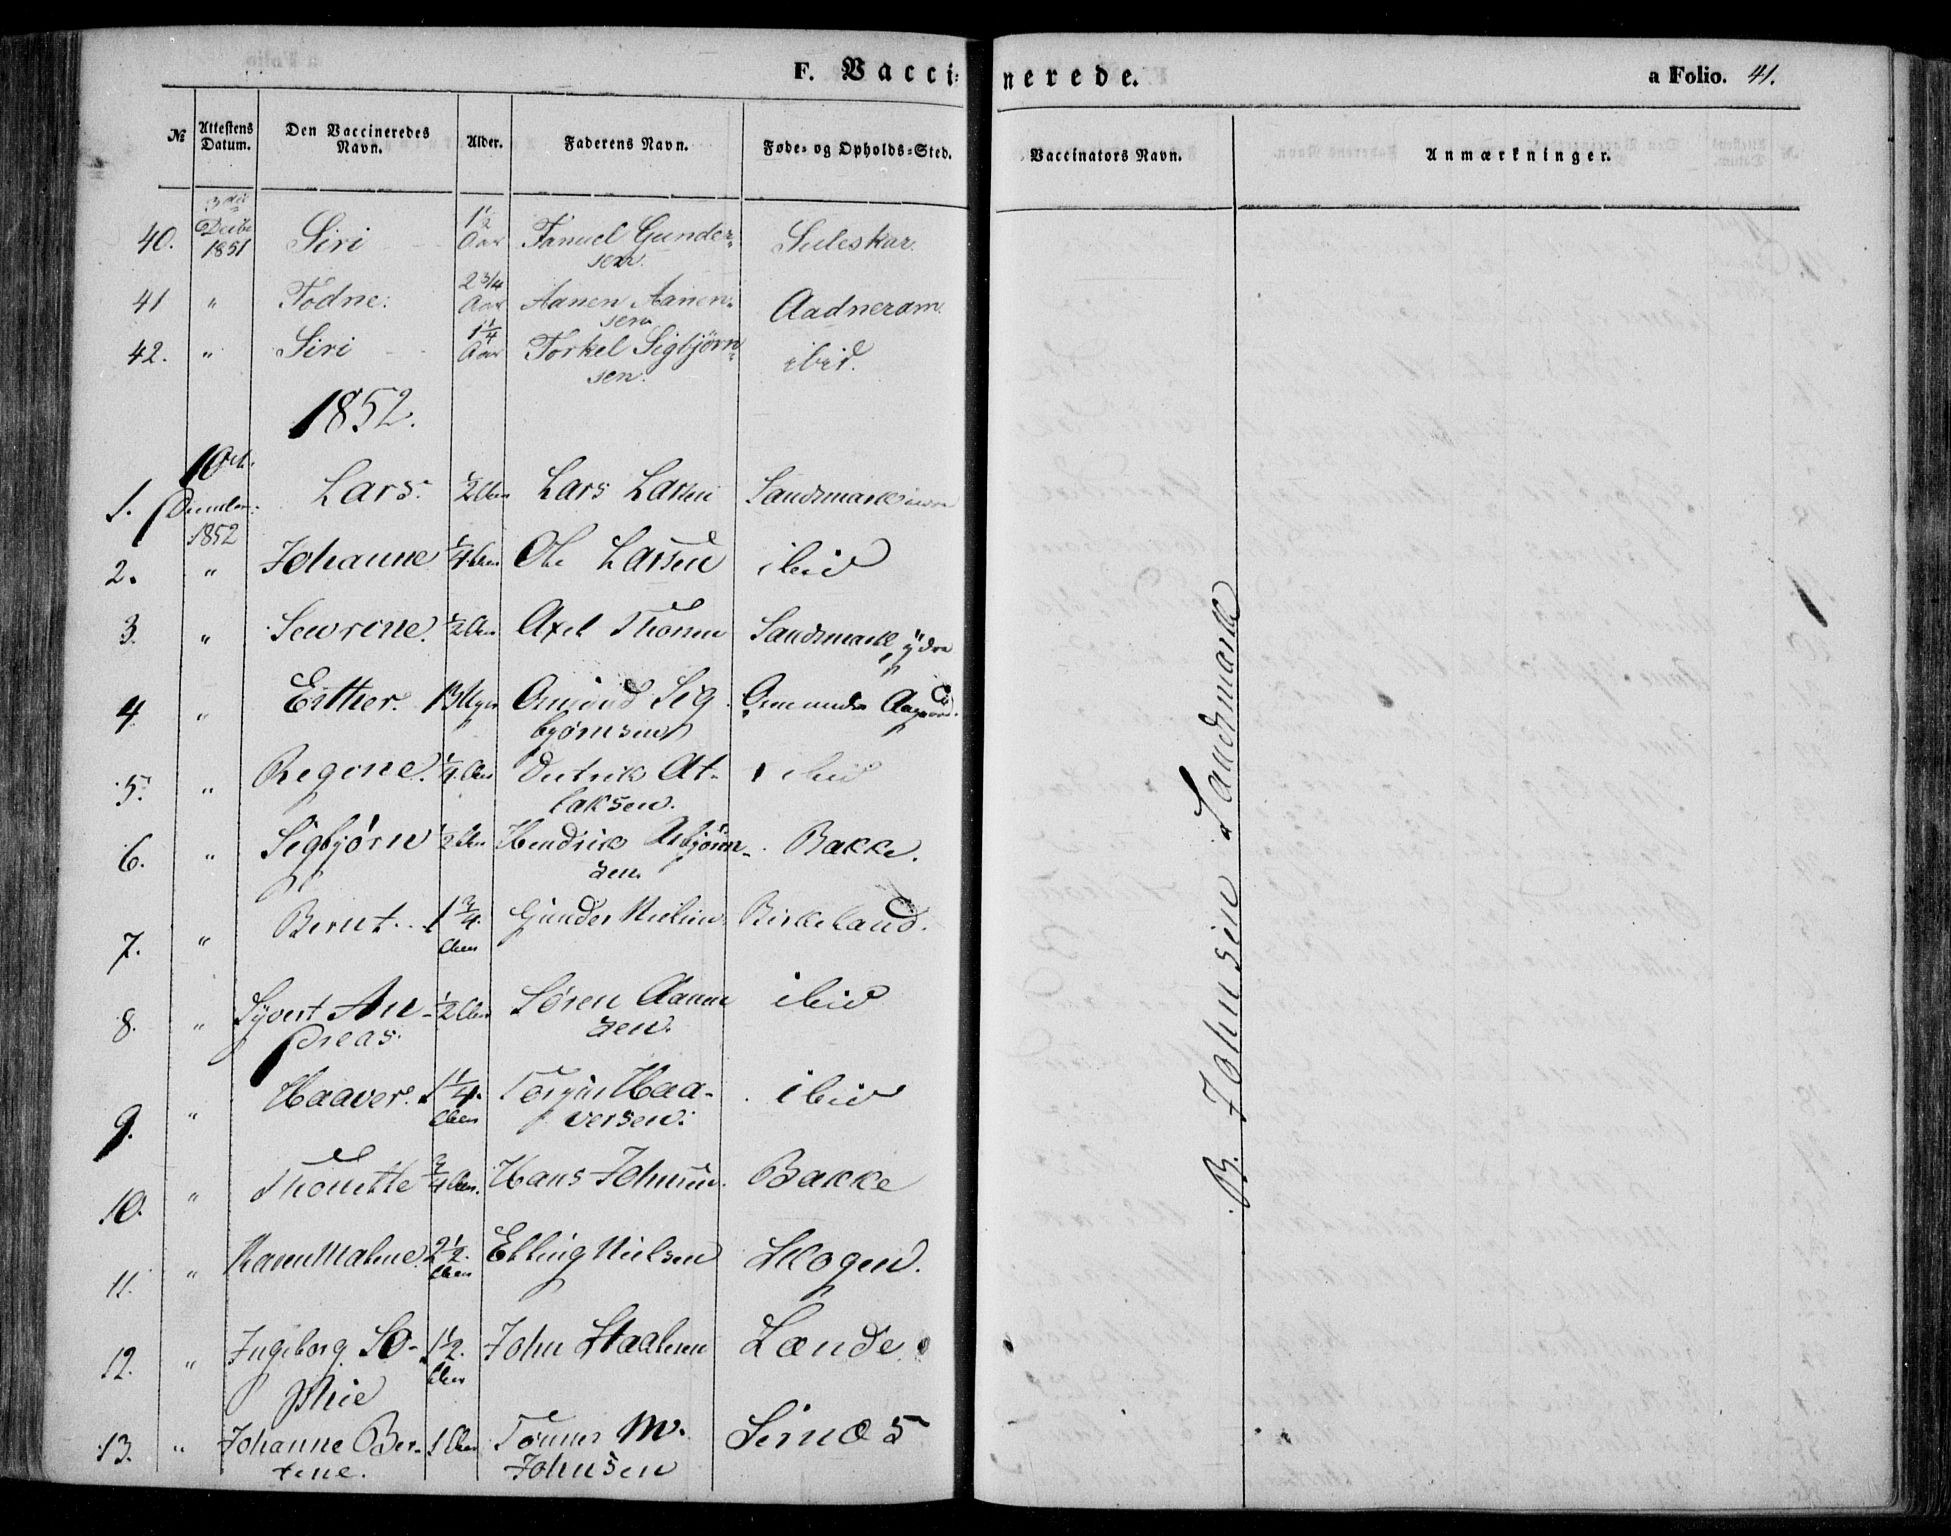 F. Vacci=nerede.
a Folio. 41.
№
Attestens Datum.
Den Vaccineredes Navn.
Alder.
Faderens Navn.
Føde- og Opholds-Sted.
Vaccinators Navn.
Anmærkninger.
3die
40. Decbr 1851 Siri 1½ Aar Tanuel Gunder-
sen. Suleskar.
41 " Todne. 2 3/4 Aar Aanen Aanen-
sen Aadneram.
42. " Siri 1¼ Aar Torkel Sigbjørn-
sen. ibid.
1852.
1. 10de December: 1852 Lars. ½ Aar Lars Larsen Sandsmark
2. " Johanne ¼ Aar Ole Larsen ibid
3. " Sevrine. ½ Aar Axel Sandsmark ydre
4. " Esther. 13 Uger Omund Sig
bjørnsen
5. " Regine. ¼ Aar Didrik At-
laksen. ibid
6. " Sigbjørn ½ Aar Hendrik
sen. Bakke.
7. " Bernt 1 3/4 Aar Gunder Nielsen Birkeland.
8. " Syvert An-
dreas. ½ Aar Søren Aanen
sen. ibid
9. " Haaver. 1¼ Aar Torger Haa-
versen. ibid
10. " Thonette 3/4 Aar. Hans Johnsen. Bakke
11. " Karen Malene. 2½ Aar Elling Nielsen Skogen.
12. " Ingeborg So-
phie 1½ Aar John Staalesen Lænde
13. " Johanne Ber-
tine. 1 Aar Tønnes M.
Johnsen Sirnes
B. Johnsen Sandsmark